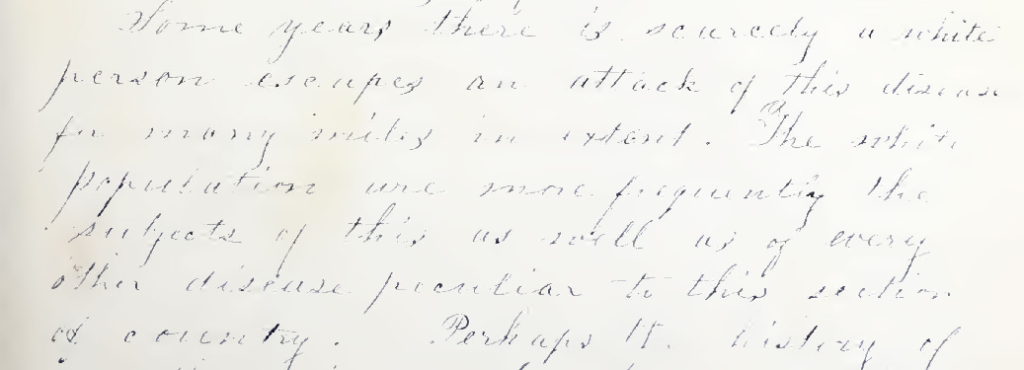 Some years there is scarcely a white
person escapes an attack of this disease
for many miles in extent. The white
population are more frequently the
subjects of this as well as of every
other disease peculiar to this section
of country. Perhaps history of